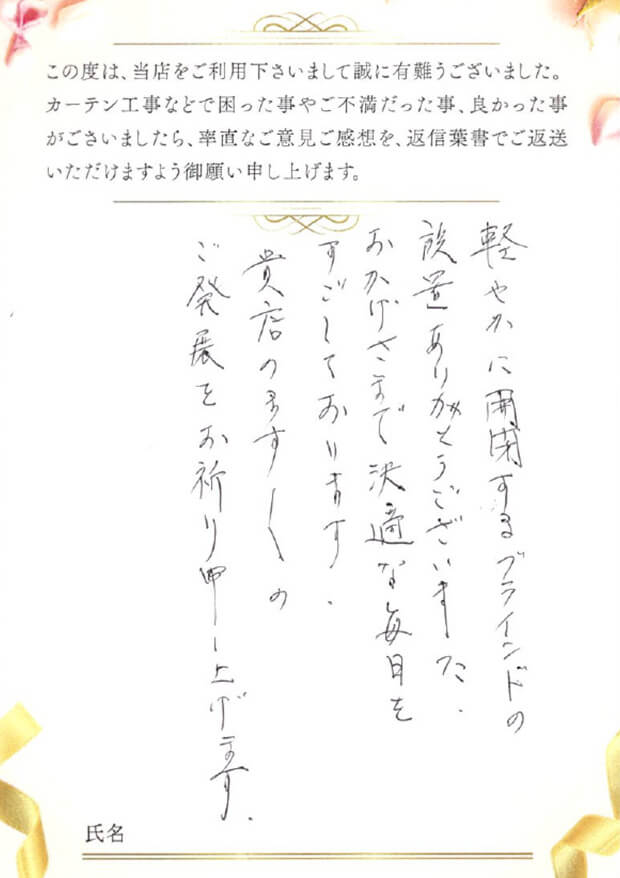 この度は、当店をご利用下さいまして誠に有難うございました。
カーテン工事などで困った事やご不満だった事、良かった事
がございましたら、率直なご意見ご感想を、返信葉書でご返送
いただけますよう御願い申し上げます。
軽やかに開閉するブラインドの
放置ありがとうございました.
おかげさまで決適な毎日を
すごしております.
貴店のますます〱の
ご発展をお祈り申し上げます.
氏名